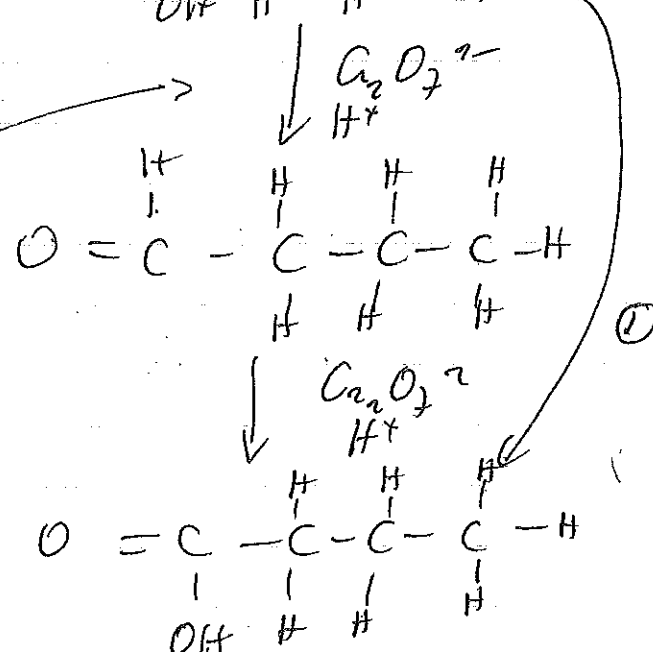 OH H H
Cr₂O₇²⁻
H⁺
H H H H
O = C - C - C - C - H
H H H
Cr₂O₇²
H⁺
①
H H H
O = C - C - C - C - H
OH H H H